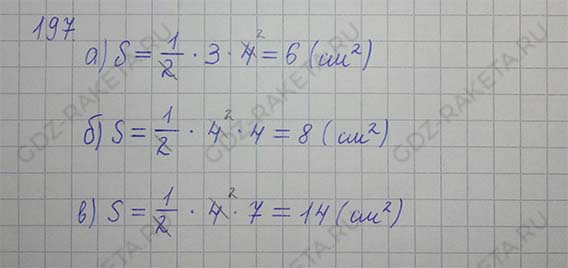 197
а) S = 1/2 · 3 · 4² = 6 (см²)
б) S = 1/2 · 4² · 4 = 8 (см²)
в) S = 1/2 · 4² · 7 = 14 (см²)
GDZ-RAKETA.RU
GDZ-RAKETA.RU
GDZ-RAKETA.RU
GDZ-RAKETA.RU